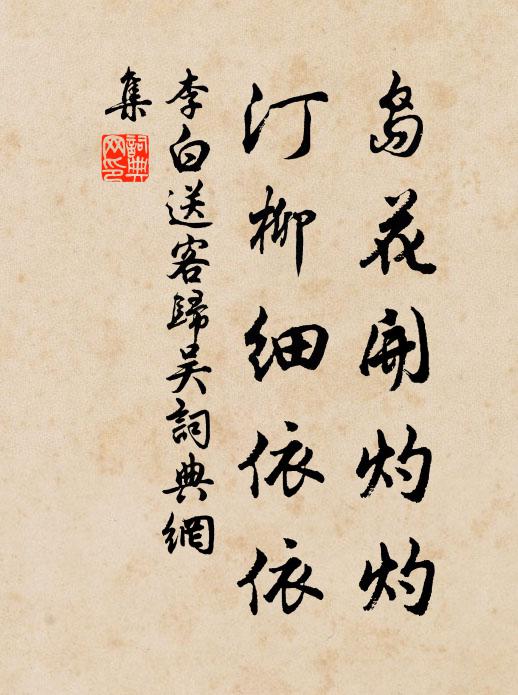 島花開灼灼
汀柳細依依
李白送客歸吴詞典網
集
詞典
网印